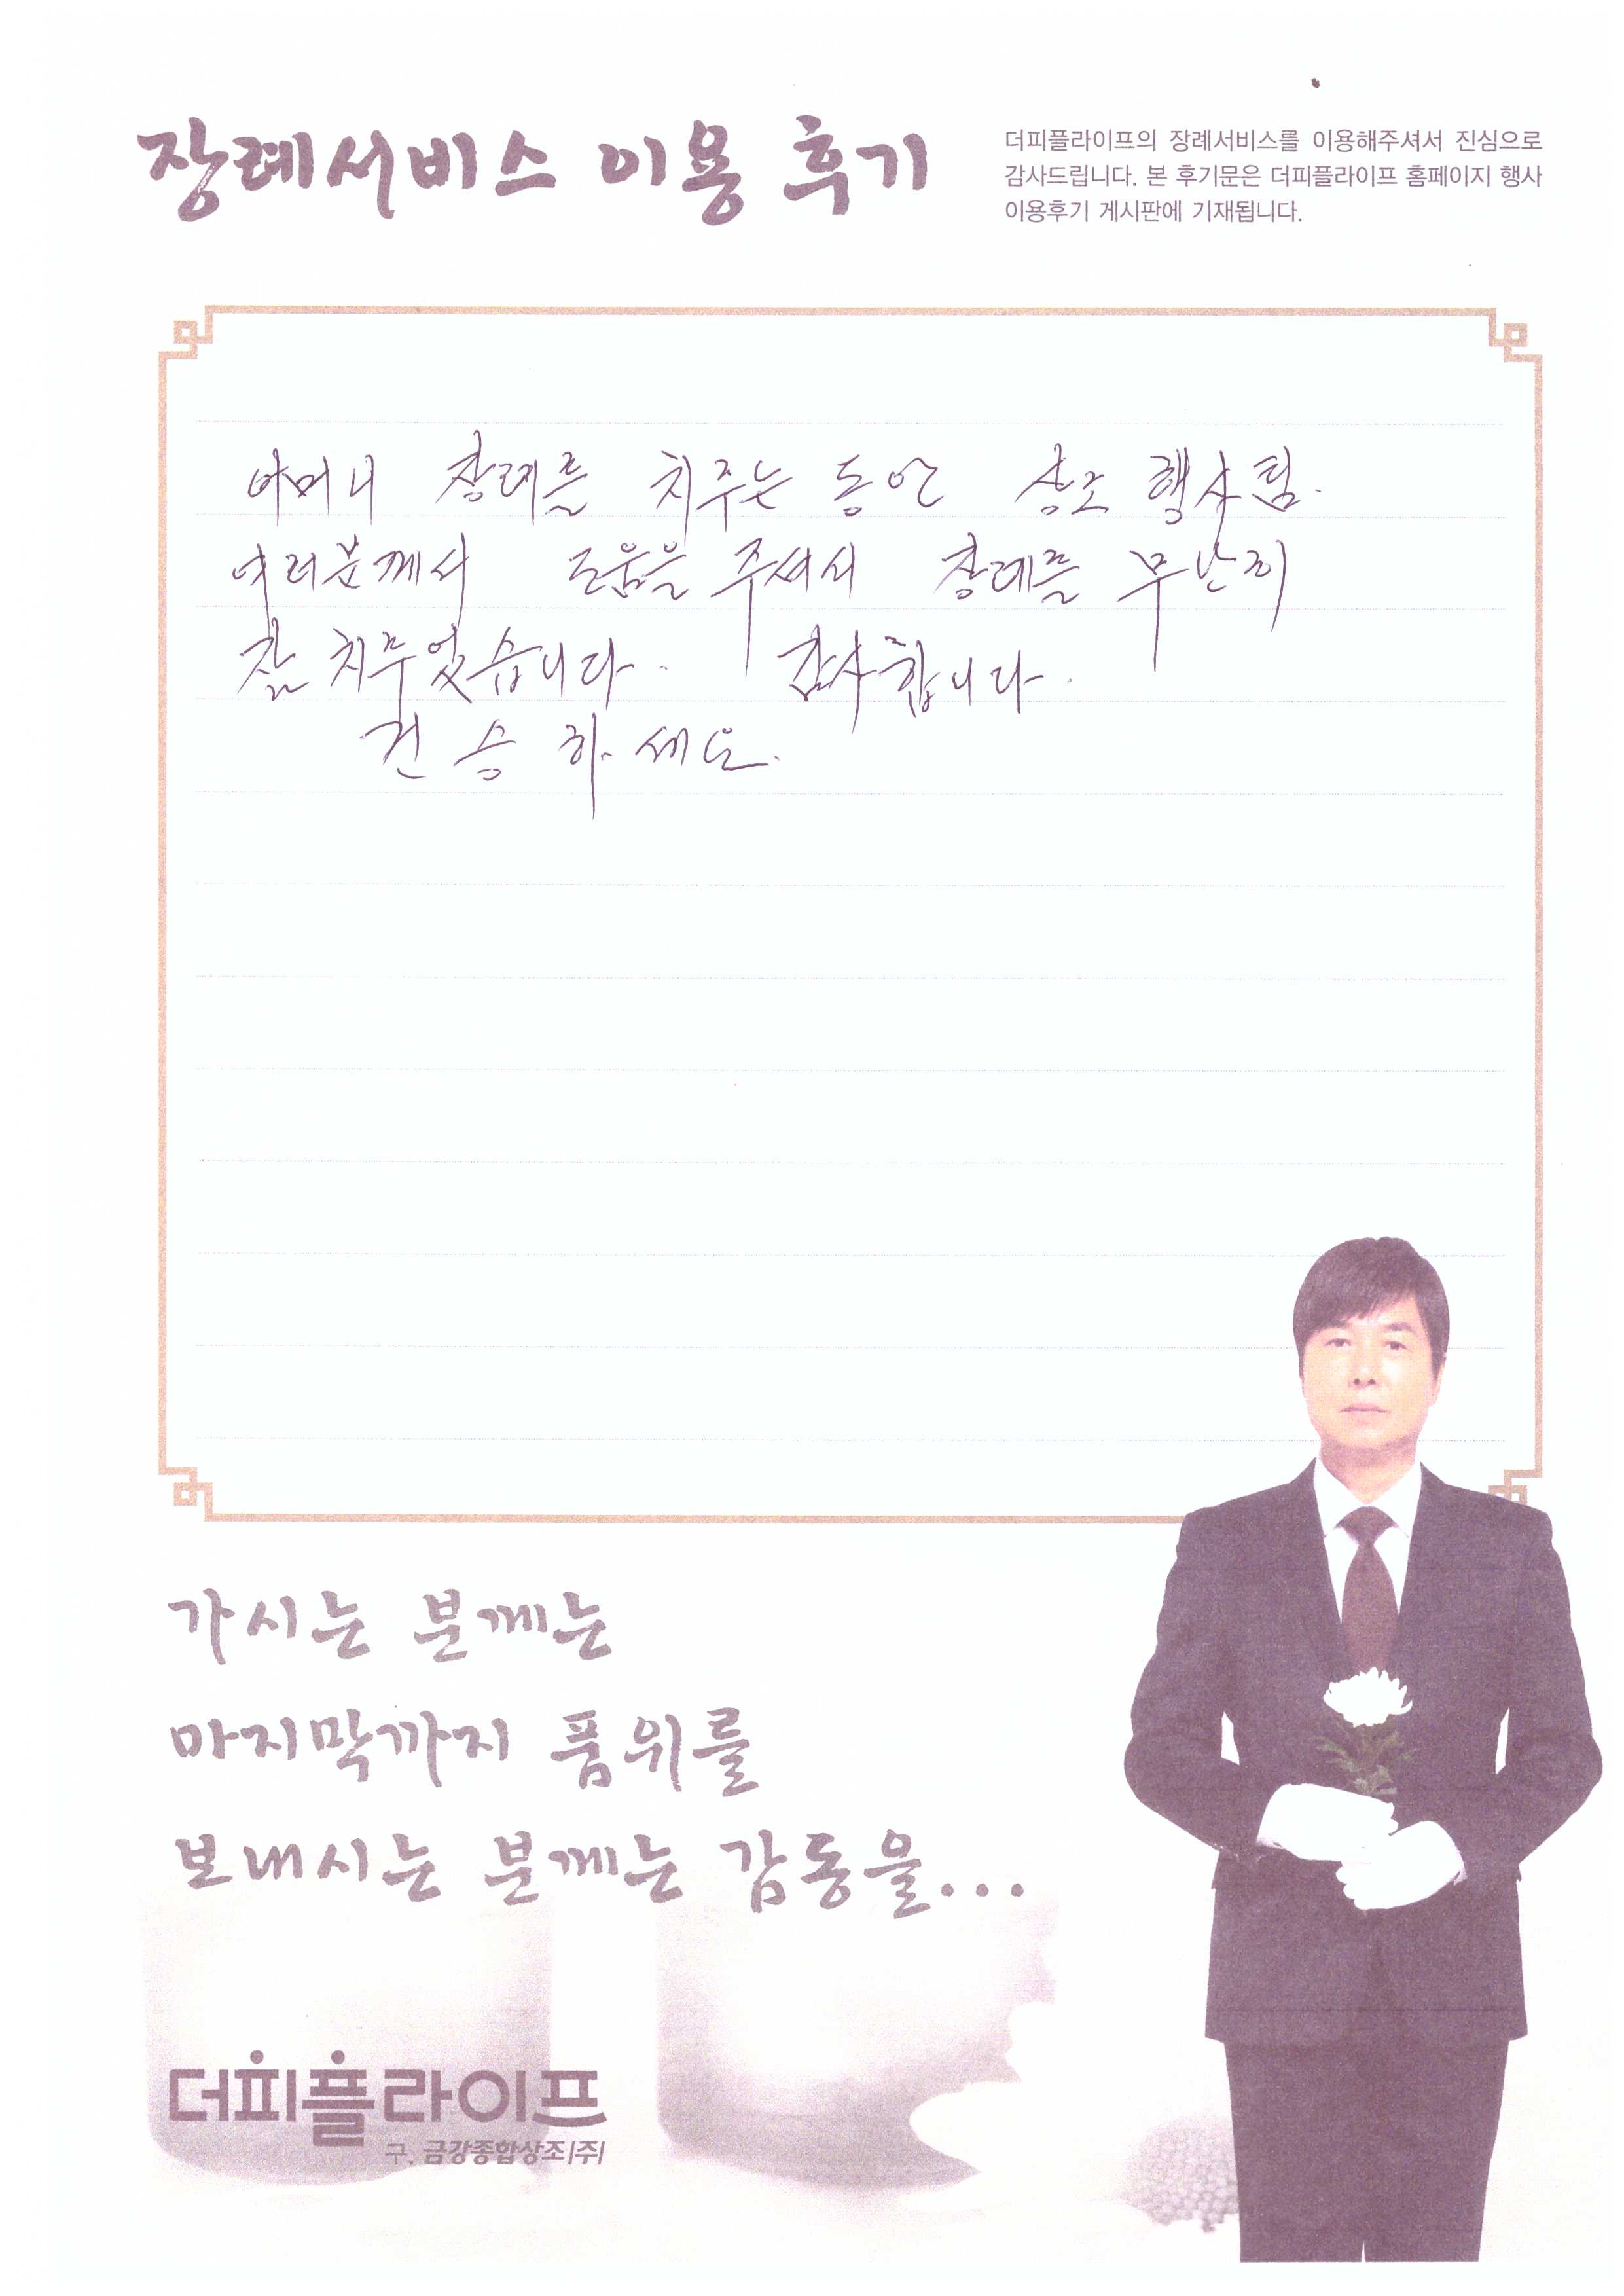 장례서비스 이용 후기
더피플라이프의 장례서비스를 이용해주셔서 진심으로
감사드립니다. 본 후기문은 더피플라이프 홈페이지 행사
이용후기 게시판에 기재됩니다.
어머니 장례를 치주는 동안 상조 행사팀.
여러분께서 도움을 주셔서 장례를 무난히
잘 치루었습니다. 감사합니다.
건승하세요.
가시는 분께는
마지막까지 품위를
보내시는 분께는 감동을...
더피플라이프
구. 금강종합상조|주|